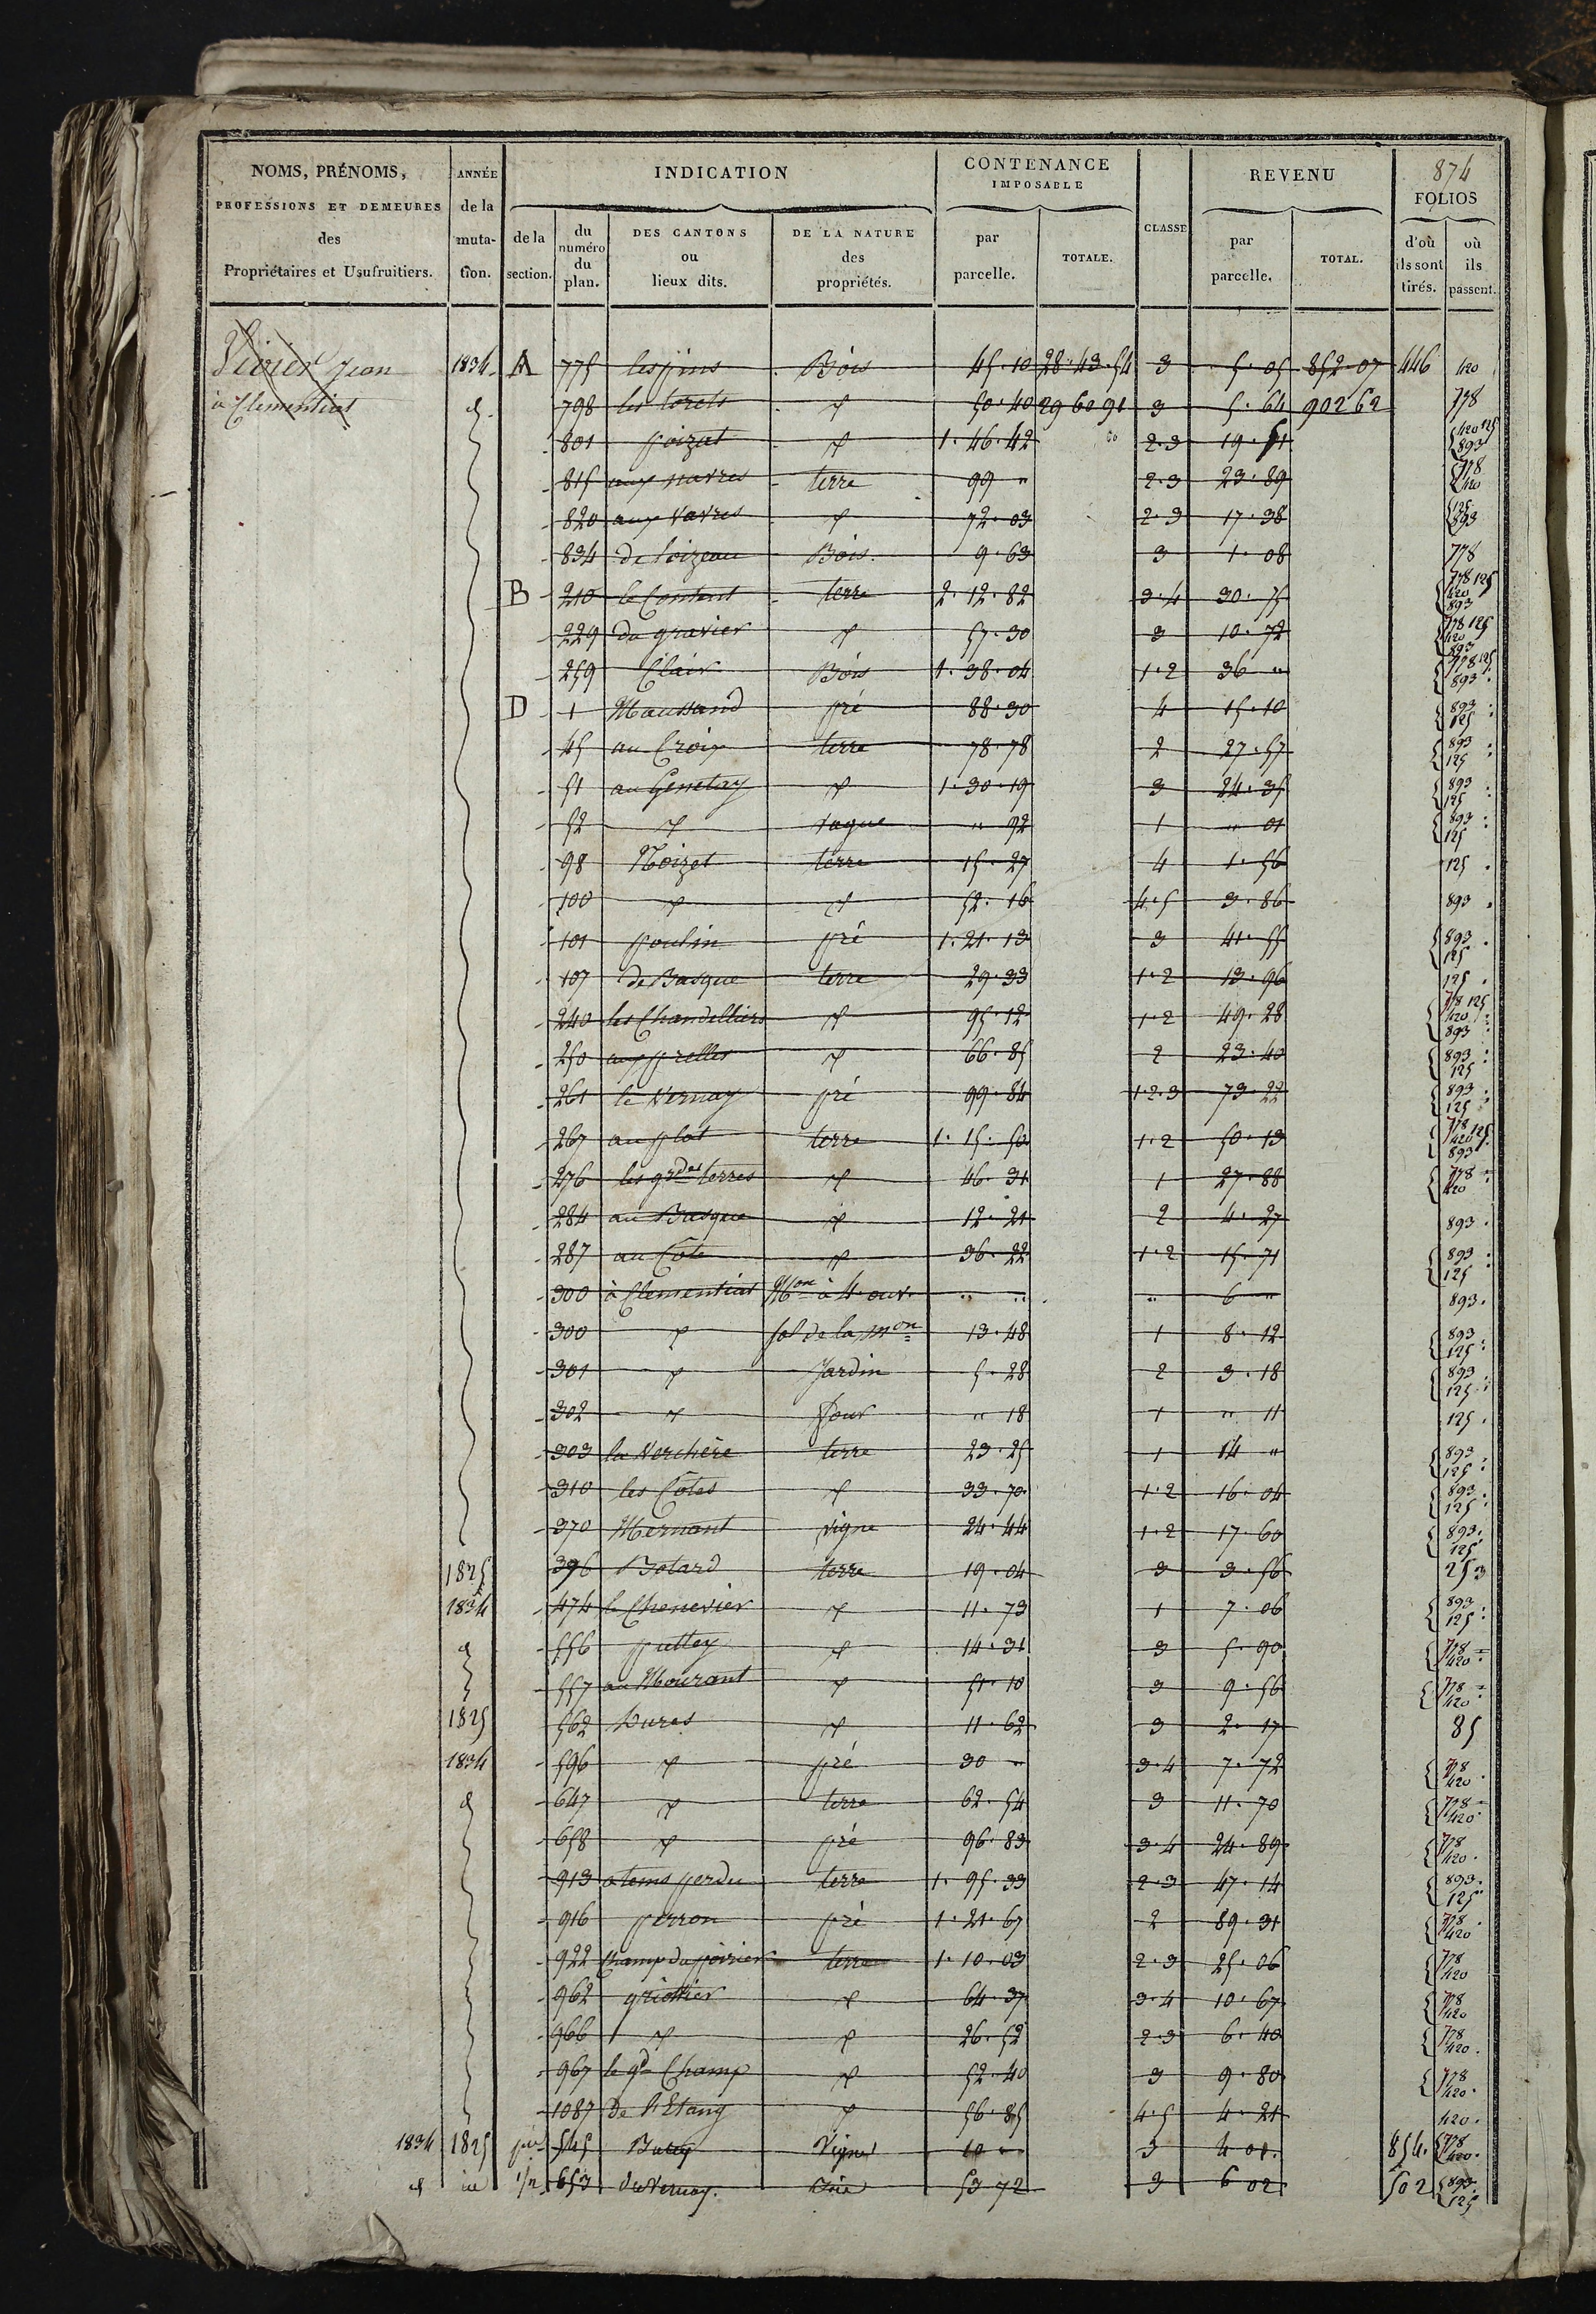 874
NOMS, PRÉNOMS, PROFESSIONS ET DEMEURES des Propriétaires et Usufruitiers.
ANNÉE de la muta- tion.
INDICATION
de la section.
du numéro du plan.
DES CANTONS ou lieux dits.
DE LA NATURE des propriétés.
CONTENANCE IMPOSABLE
par parcelle.
TOTALE.
CLASSE
REVENU
par parcelle.
TOTAL.
FOLIOS
d'où ils sont tirés.
où ils passent.
Vivier Jean 1834 A 775 les pins Bois 45.10 28.43.54 3 5.05 852.07 446 420
à Clementiat d. 798 les torets d 50.40 29 60 91 3 5.64 902 62 778
801 poizat d 1.46.42 2.3 19.51 420 125 893
815 aux navres terre 99 " 2.3 23.89 778 420
820 aux Vavres d 72.03 2.3 17.38 125 893
834 de loizeau Bois 9.63 3 1.08 778
B 210 le Content terre 2.12.82 3.4 30.75 778 125 420 893
229 du gravier d 57.30 3 10.72 778 125 420 893
259 Clair Bois 1.38.04 1.2 36 " 778 125 893
D 1 Maussand pré 88.30 4 15.10 893 125
45 au Croix terre 78.78 2 27.57 893 125
51 au Genetay d 1.30.19 3 24.35 893 125
52 d vague " 92 1 " 01 893 125
98 Noizet terre 15.27 4 1.56 125
100 d d 52.16 4.5 3.86 893
101 poulin pré 1.21.13 3 41.55 893 125
107 de Basque terre 29.33 1.2 13.96 125
240 les Chandelliers d 95.12 1.2 49.28 778 125 420 893
250 aux prelles d 66.85 2 23.40 893 125
261 le Vernay pré 99.84 1.2.3 73.22 893 125
267 au plat terre 1.15.50 1.2 50.13 778 420 125 893
276 les gdes terres d 46.31 1 27.88 778 420
284 au Basque d 12.21 2 4.27 893
287 au Cote d 36.22 1.2 15.71 893 125
300 à Clementiat Mon à 4 ouv. " " " 6 " 893
300 d sol de la mon 13.48 1 8.12 893 125
301 d Jardin 5.28 2 3.18 893 125
302 d four " 18 1 " 11 125
303 la Verchère terre 23.25 1 14 " 893 125
310 les Côtes d 33.70 1.2 16.04 893 125
370 Mernant vigne 24.44 1.2 17.60 893 125
1825 396 Botard terre 19.04 3 3.56 253
1834 474 le Chenevier d 11.73 1 7.06 893 125
d 556 puttey d 14.31 3 5.90 778 420
557 au Mourant d 51.10 3 9.56 778 420
1825 562 Dures d 11.62 3 2.17 85
1834 596 d pré 30 " 3.4 7.72 778 420
d 647 d terre 62.54 3 11.70 778 420
658 d pré 96.83 3.4 24.89 778 420
913 a tems perdu terre 1.95.33 2.3 47.14 893 125
916 perron pré 1.21.67 2 89.31 778 420
922 Champ du poirier terre 1.10.03 2.3 25.06 778 420
962 griottier d 64.37 3.4 10.67 778 420
966 d d 26.52 2.3 6.40 778 420
967 le gd Champ d 52.40 3 9.80 778 420
1087 De l'Etang d 56.85 4.5 4.21 420
1834 1825 545 Vigne 10 " 3 4 01 854 778 420
d 1/2 653 du Vernay 53 72 3 6 02 502 893 125